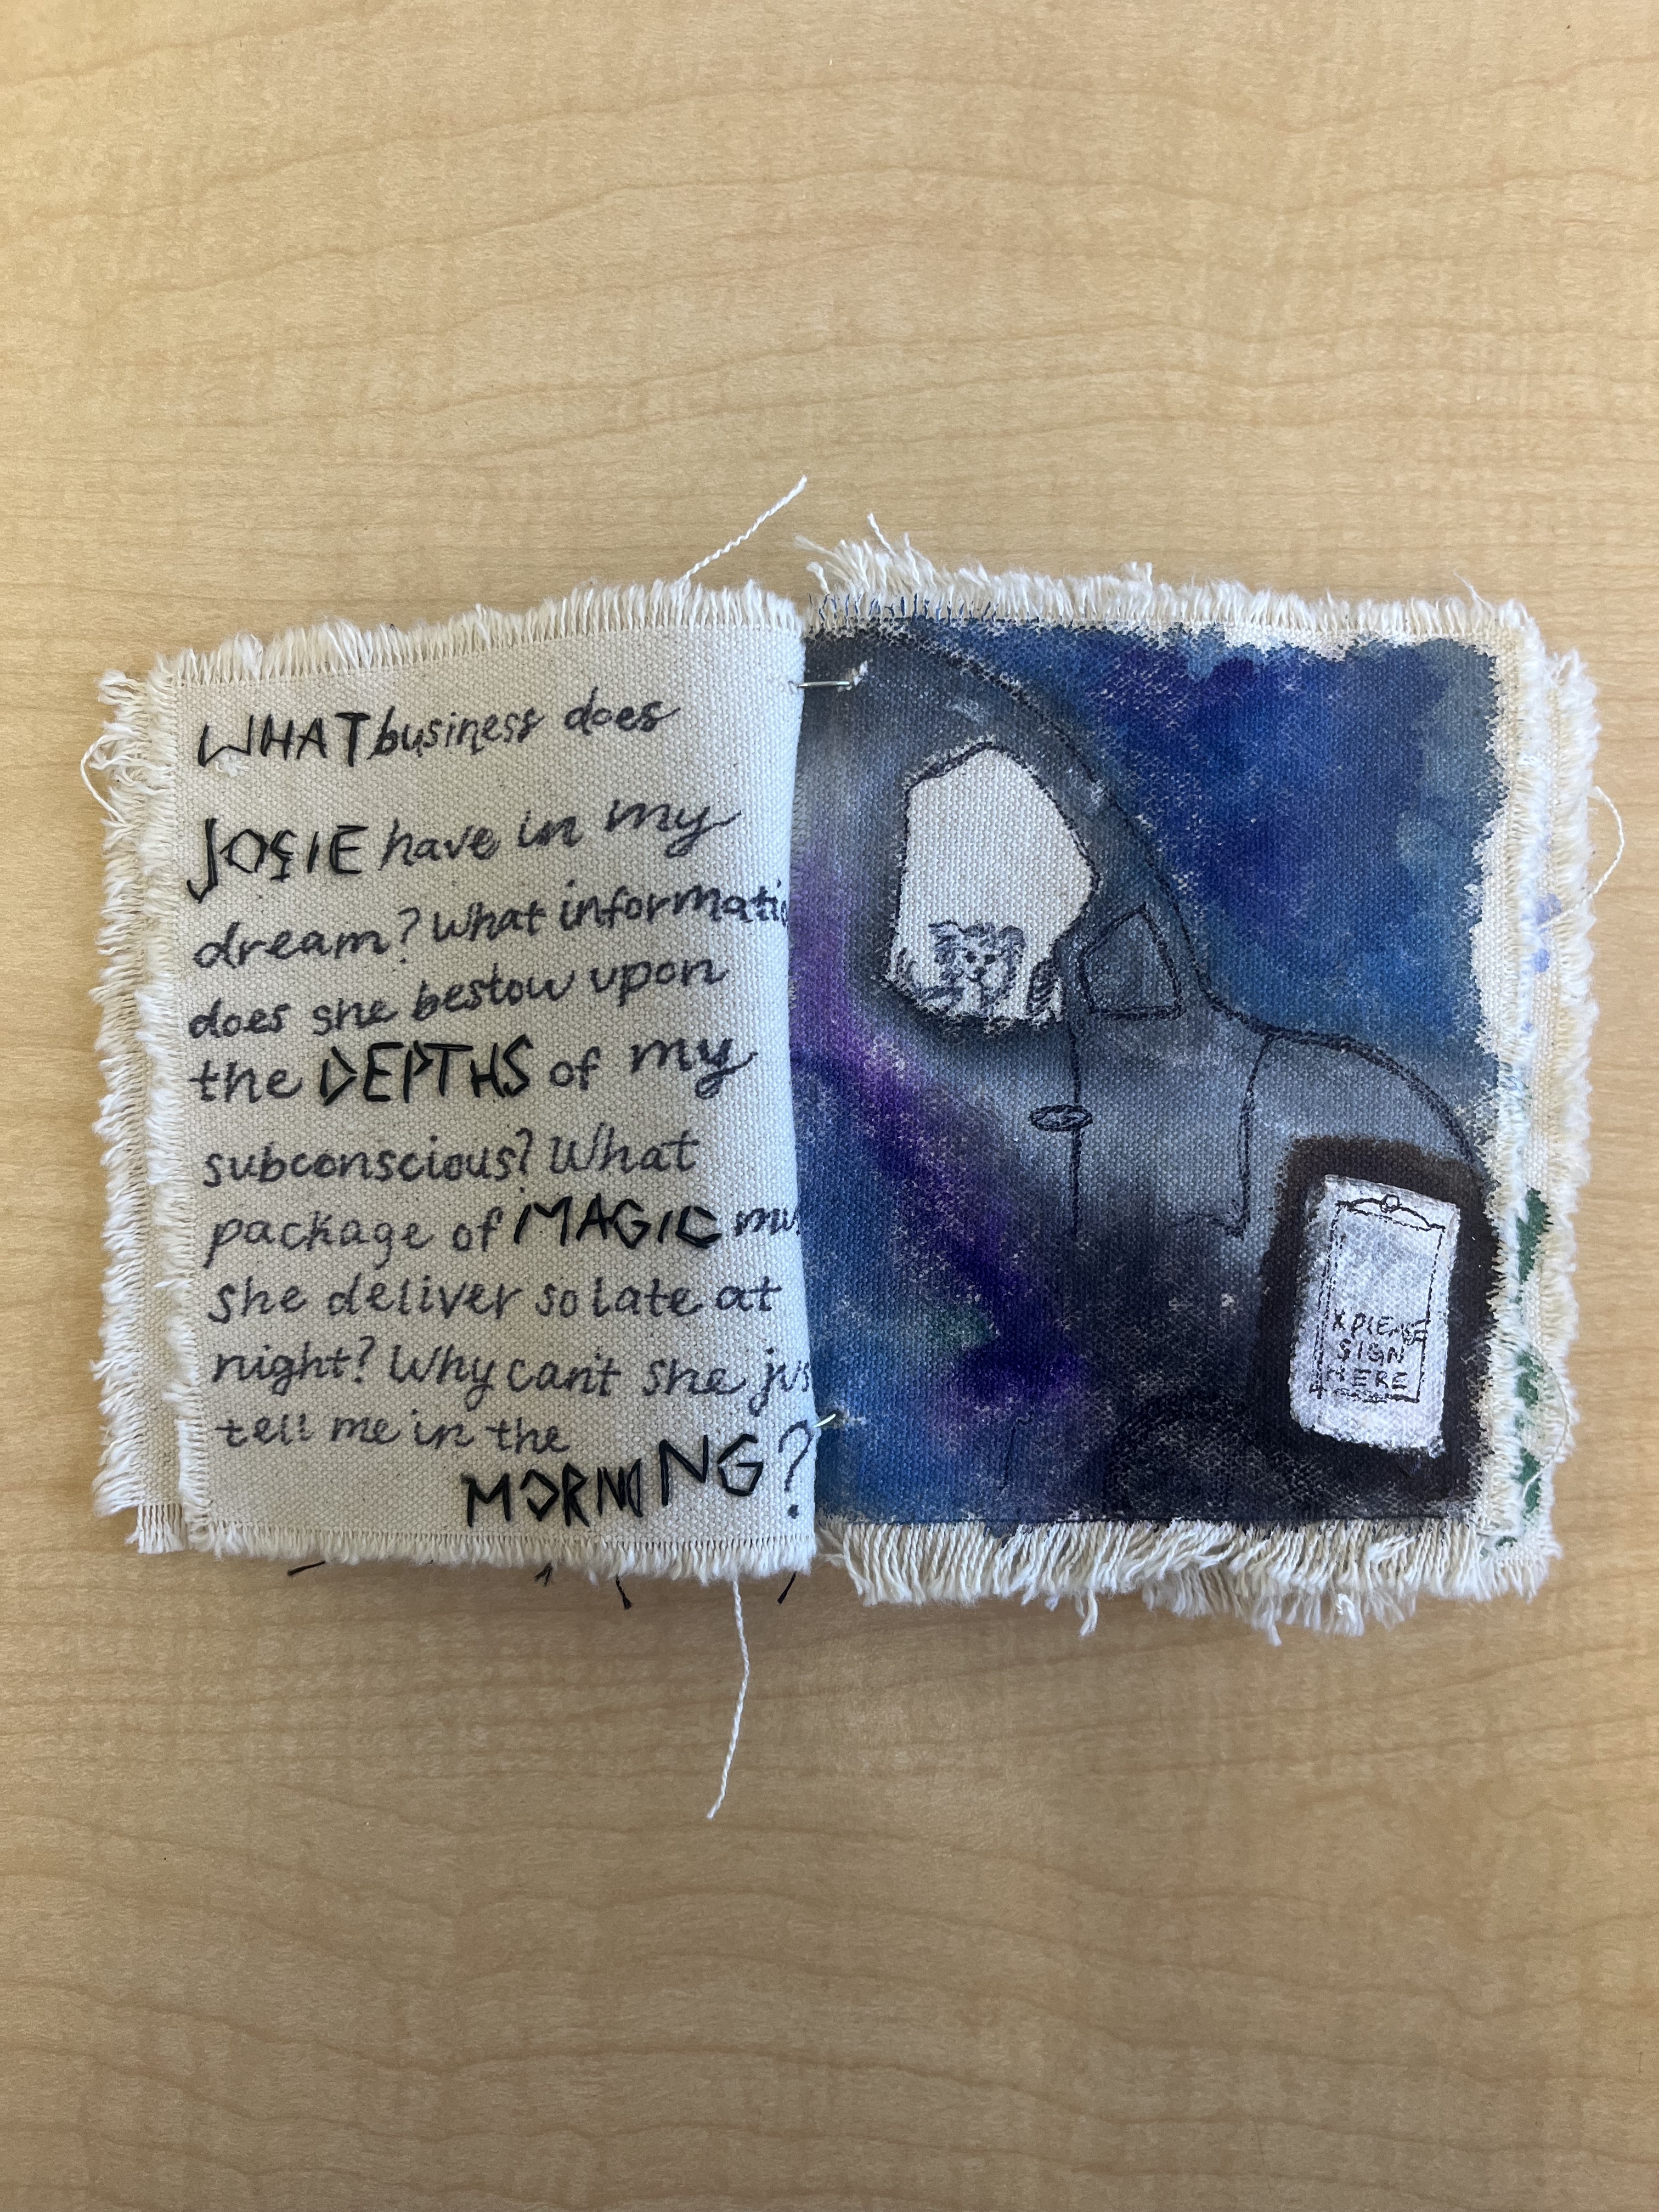 WHAT business does
JOSIE have in my
dream? What informatio
does she bestow upon
the DEPTHS of my
subconscious? What
package of MAGIC mu
she deliver so late at
night? Why can't she jus
tell me in the
MORNING?
X PLEASE
SIGN
HERE